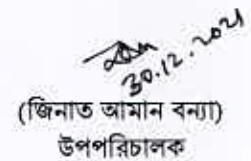 30.12.2021
(জিনাত আমান বন্যা)
উপপরিচালক